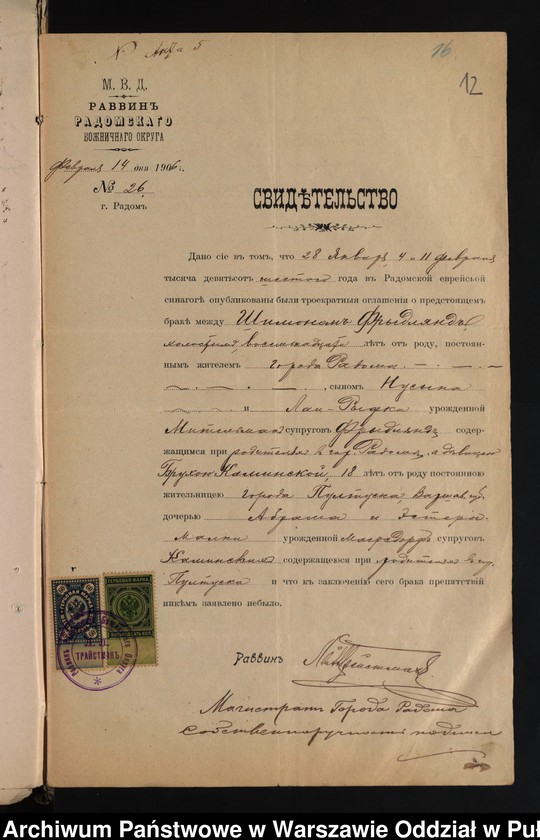 16
12
М. В. Д.
РАВВИНЪ
РАДОМСКАГО
БОЖНИЧНАГО ОКРУГА
Февраля 14 дня 1906 г.
№ 26
г. Радомъ
СВИДѢТЕЛЬСТВО
Дано сіе въ томъ, что 28 Января 4 и 11 февраля
тысяча девятьсот шестого года въ Радомской еврейской
синагогѣ опубликованы были троекратныя оглашенія о предстоящемъ
бракѣ между Шимономъ Фрыдляндъ,
холостымъ, восемнадцати лѣтъ отъ роду, постоян-
нымъ жителемъ города Радома
, сыномъ Нусына
и Лаи-Рыфка урожденной
Мительман супруговъ Фрыдляндъ содер-
жащимся при родителяхъ в гор. Радомѣ, а дѣвицею
Брухою Каминской, 18 лѣтъ отъ роду постоянною
жительницею города Пултуска, Варшав. губ.
дочерью Абрама и Эстеры
Малки урожденной супруговъ
Каминскихъ содержащеюся при родителяхъ в гор.
Пултуска и что къ заключенію сего брака препятствій
никѣмъ заявлено небыло.
ГЕРБОВАЯ МАРКА
ТРАЙСТМАНЪ
Раввинъ
Магистратъ Города Радома
собственноручность подписи
Archiwum Państwowe w Warszawie Oddział w Puł